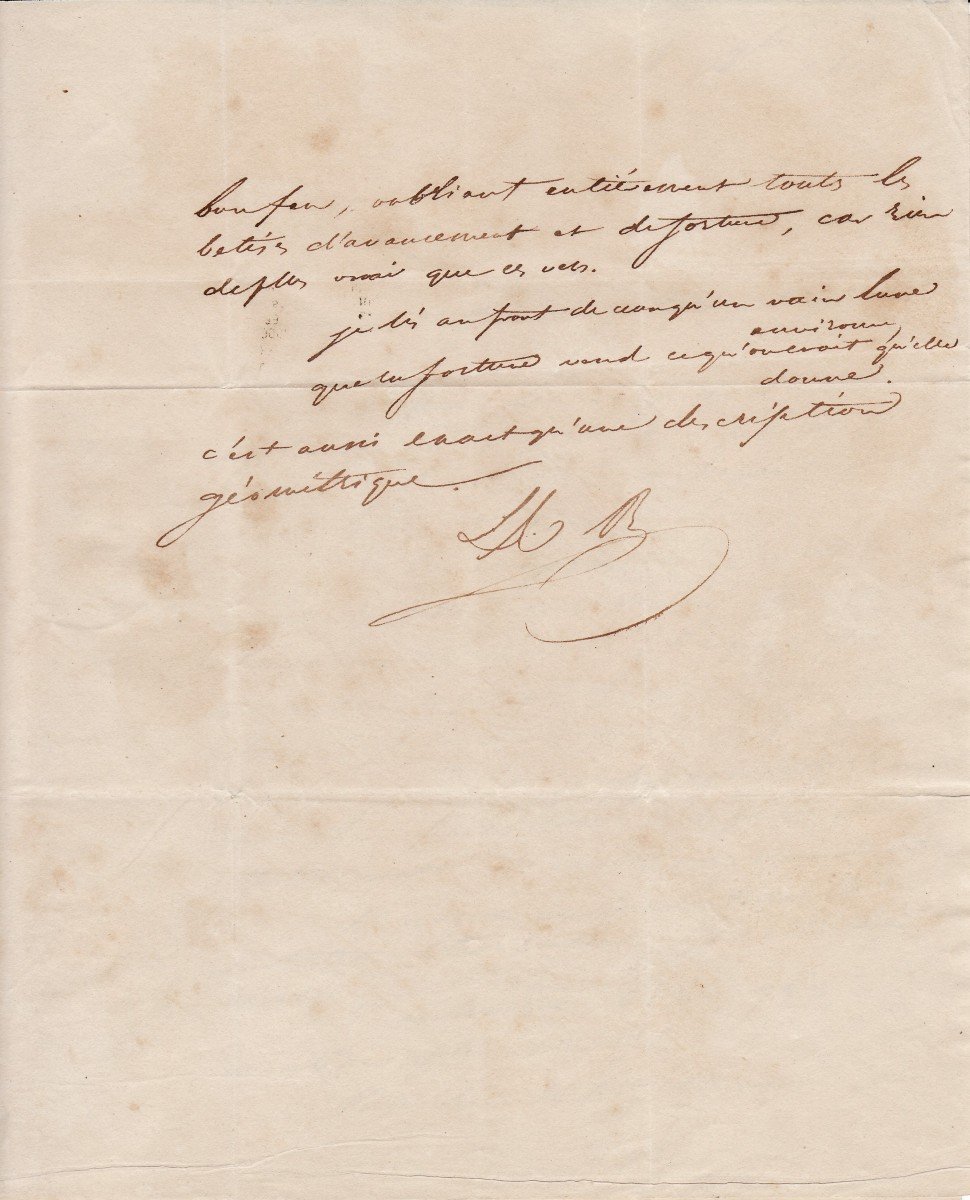 bon feu, oubliant entiérement touts les
betises d'avancement et de fortune, car rien
de plus vrai que ces vers.
je lis au front de ceux qu'un vain luxe
environne,
que la fortune vend ce qu'on croit qu'elle
donne.
c'est aussi exact qu'une description
géométrique.
B